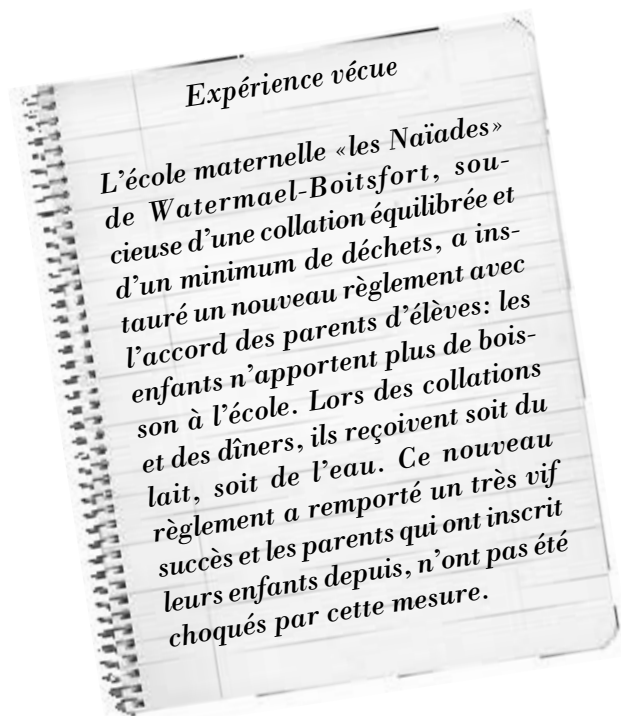 Expérience vécue
L'école maternelle «les Naïades»
de Watermael-Boitsfort, sou-
cieuse d'une collation équilibrée et
d'un minimum de déchets, a ins-
tauré un nouveau règlement avec
l'accord des parents d'élèves: les
enfants n'apportent plus de bois-
son à l'école. Lors des collations
et des dîners, ils reçoivent soit du
lait, soit de l'eau. Ce nouveau
règlement a remporté un très vif
succès et les parents qui ont inscrit
leurs enfants depuis, n'ont pas été
choqués par cette mesure.